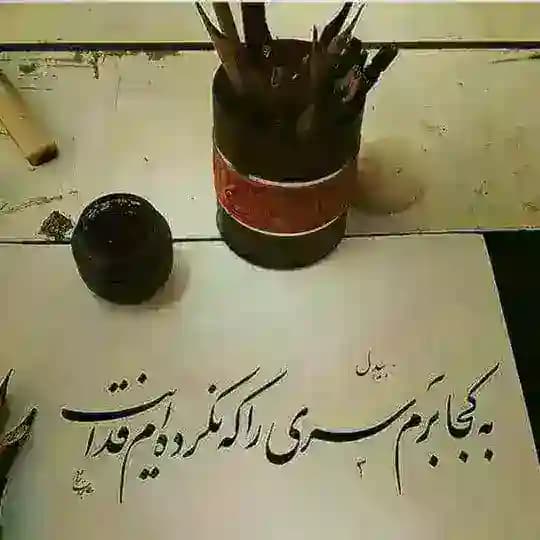 بیدل
به کجا بَرَم سری را که نکرده‌ام فدایت